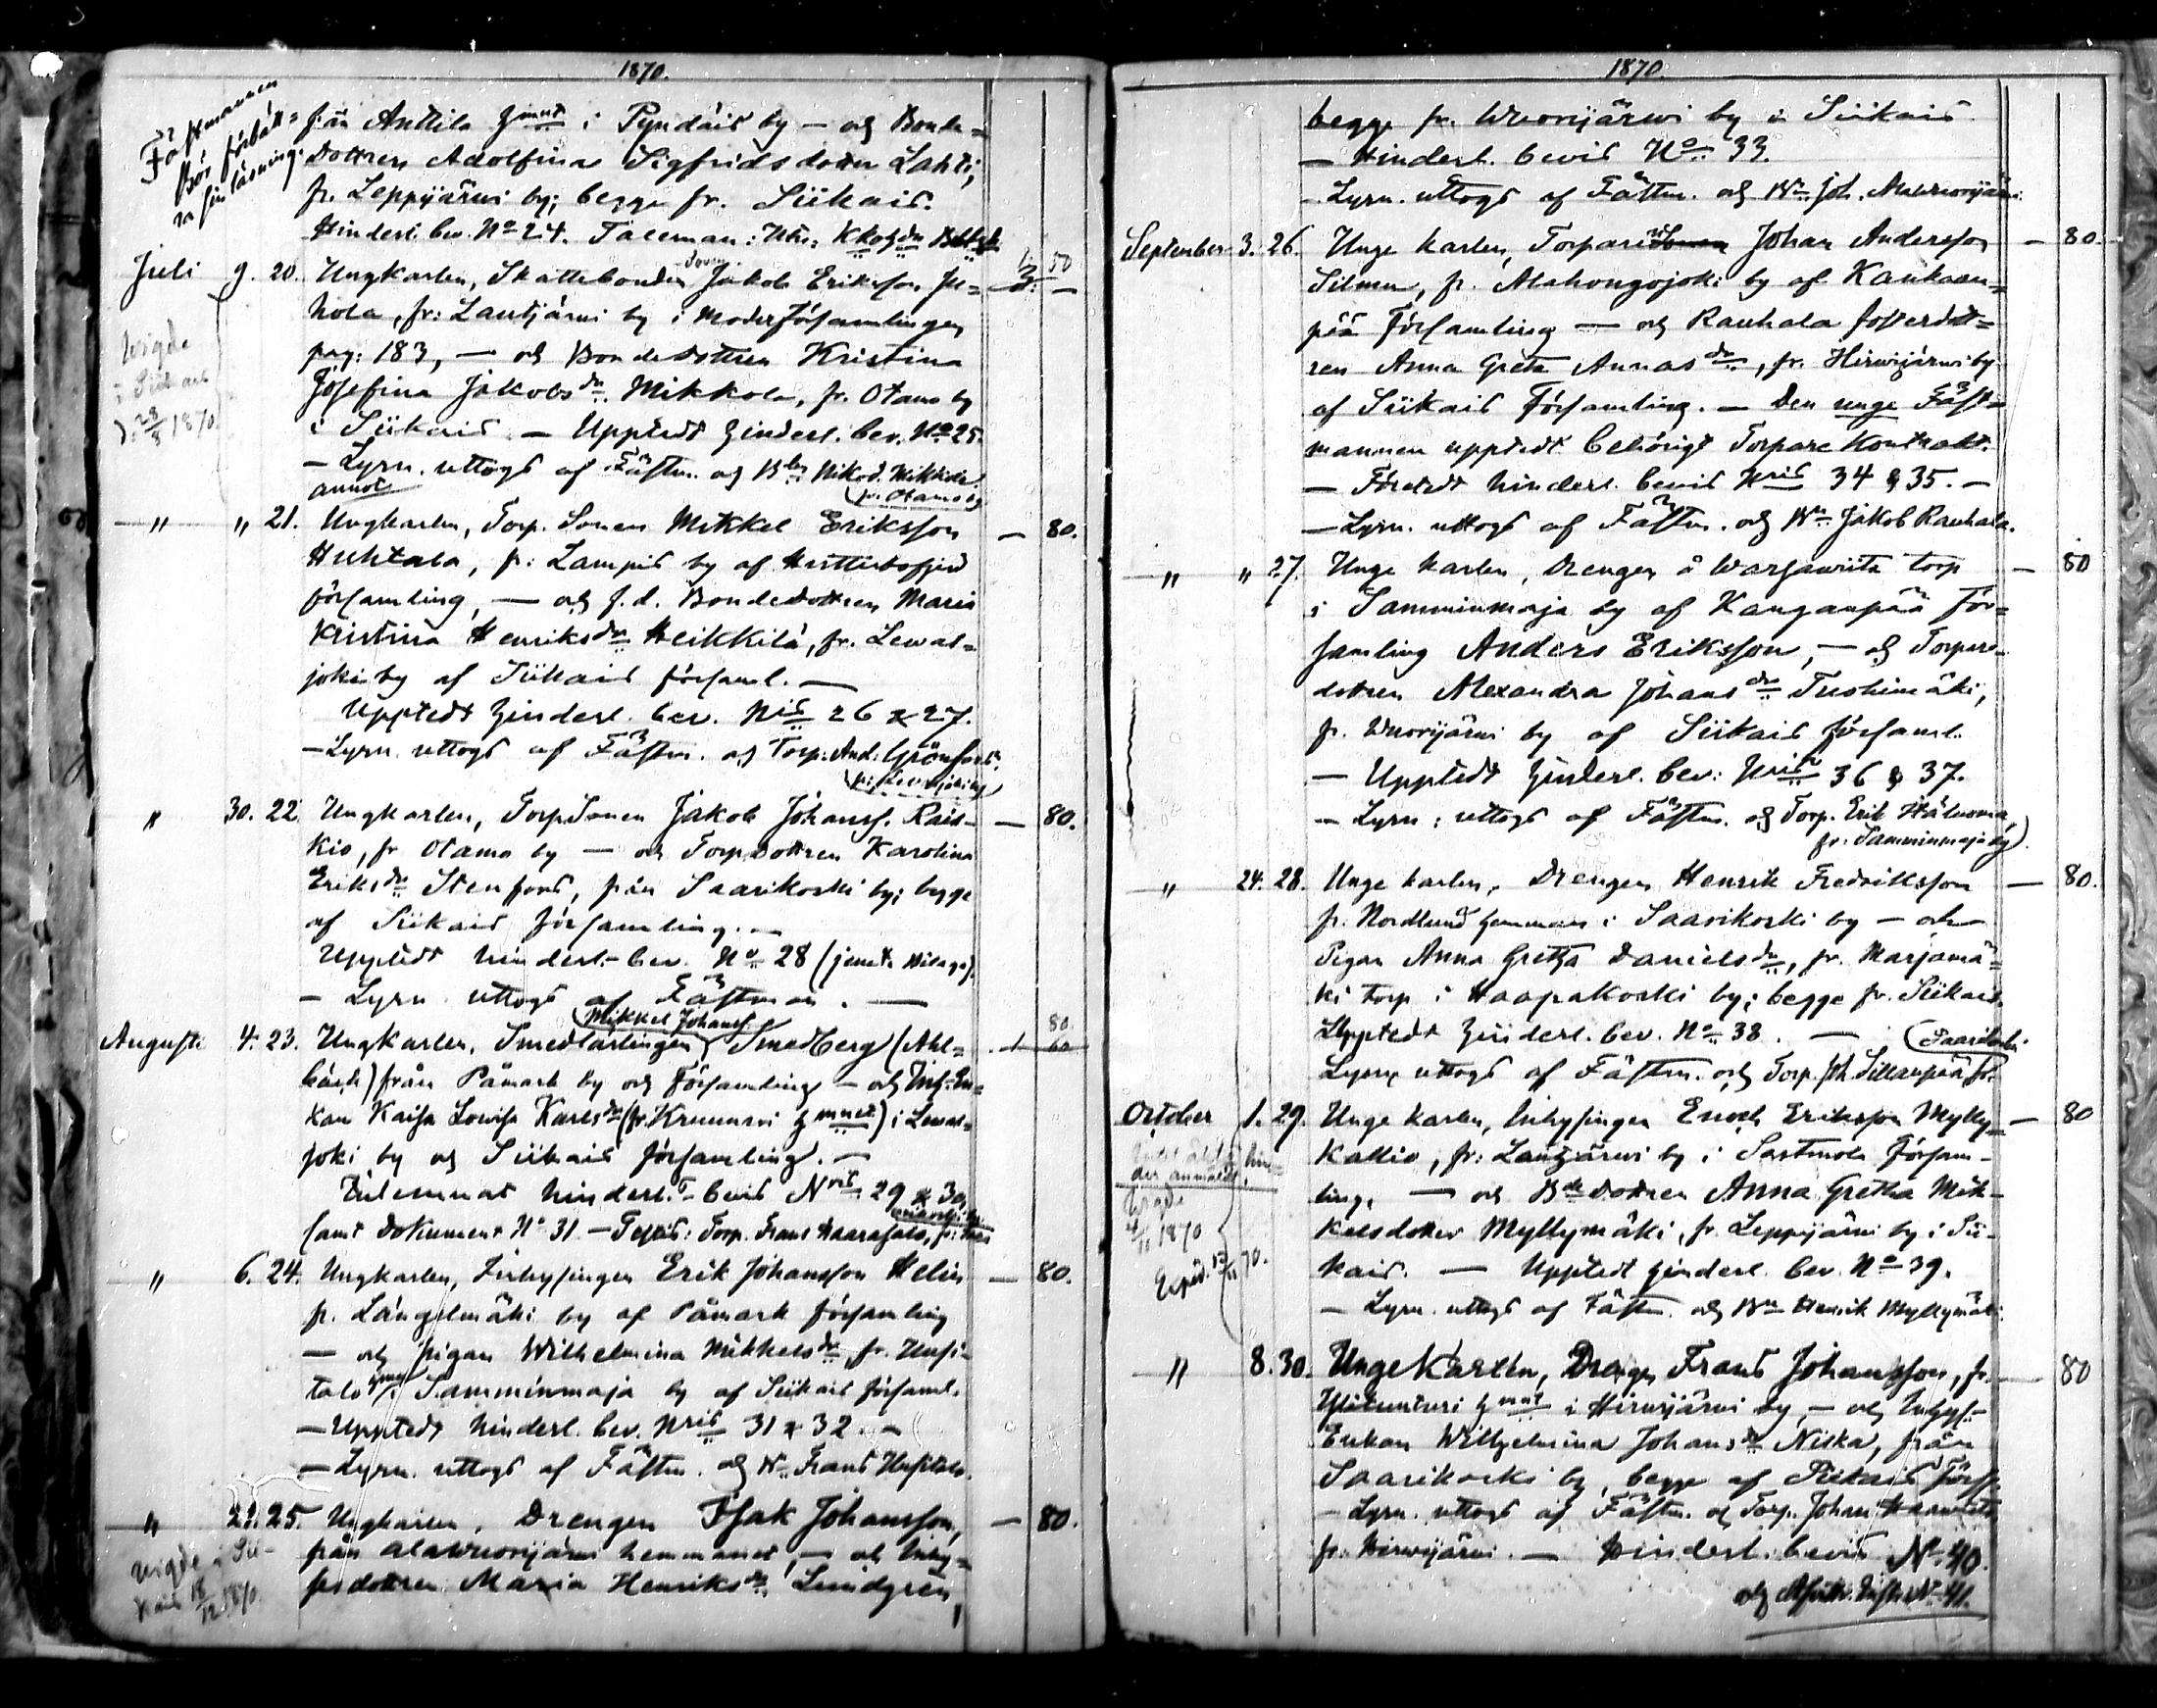 1870.
Fästmannen
bör förbätt=
ra sin läsning.
från Anttila hmnt i Pyndäis by — och Bonde=
dottren Adolfina Sigfridsdotter Lahti,
fr. Leppijärwi by; begge fr. Siikais.
Hinderl. bev. No 24. Taleman:
Juli 9. 20. Ungkarlen, Skattebonden Sonen Jakob Eriksson Ju=
hola, fr: Lantjärwi by i Moderförsamlingen
pag: 183, — och Bondedottren Kristina
Josefina Jakobsdr. Mikkola, fr. Otamo by
i Siikais. — Upptedt hinderl. bev. No 25.
— Lysn. uttogs af Fästm. och Bdn Nikod. Mikkola
annot. fr. Otamo by
Wigde
i Siikais
d. 28/8 1870
" " 21. Ungkarlen, Torp. Sonen Mikkel Eriksson — 80.
Huhtala, fr: Lampis by af Hvittisbofjerd
församling, — och f.d. Bondedottren Maria
Kristina Henriksdr Heikkilä, fr. Lewas=
joki by af Siikais församl. —
Upptedt hinderl. bev. Nris 26 & 27.
— Lysn. uttogs af Fästm. och Torp. And: Grönfors
fr: Lewasjoki by
" 30. 22. Ungkarlen, TorpSonen Jakob Johanss. Rais= — 80.
kio, fr Otamo by — och Torp.dottren Karolina
Eriksdr Stenfors, från Saarikoski by; begge
af Siikais församling. —
Upptedt hinderl.- bev. No 28 (jemte bilaga).
— Lysn. uttogs af Fästman. —
Augusti 4. 23. Ungkarlen, Smedlärlingen Mikkel Johanss. Smedberg (Ahl= 80
bäck) från Påmark by och Församling — och Inh: En=
kan Kaisa Lowisa Karlsdr (fr. Krunnari hmnet) i Lewas=
joki by och Siikais församling. —
Inlemnat hinderl.- bevis Nris 29 & 30,
samt Dokument No 31 — Torp. Frans Haarasalo, fr:
" 6. 24. Ungkarlen, Inhysingen Erik Johansson Helin — 80.
fr. Längelmäki by af Påmark församling
— och pigan Wilhelmina Mikkelsdr, fr. Uusi=
talo hmn i Samminmaja by af Siikais församl.
— Upptedt hinderl. bev. Nris 31 & 32. —
— Lysn. uttogs af Fästm. och Bn. Frans Uusitalo.
" 22. 25. Ungkarlen, Drengen Isak Johansson, — 80.
från Alawuorijärwi hemmanet, — och Inhy=
sesdottren Maria Henriksdr Lundgren,
Wigde i Sii=
kais 18/12 1870.
1870
begge fr. Wuorijärwi by i Siikais.
— Hinderl. bevis No 33.
— Lysn. uttogs af Fästm. och Bn Joh. Alawuorijärwi.
September 3. 26. Unge karlen, Torparen Johan Andersson — 80.
Silmu, fr. Alahongojoki by af Kankaan=
pää Församling — och Rauhala fosterdott=
ren Anna Greta Annasdr, fr. Hirwijärwi by
af Siikais Församling. — Den unge Fäst=
mannen upptedt behörigt Torpare Kontrakt.
— Företedt hinderl. bevis Nris 34 & 35. —
— Lysn. uttogs af Fästm. och Bn Jakob Rauhala.
" " 27. Unge karlen, Drengen å Warsawiita torp — 80
i Samminmaja by af Kangaspää För=
samling Anders Eriksson, — och Torpare=
dottren Alexandra Johansdr Tuohimäki,
fr. Wuorijärwi by af Siikais församl.
— Upptedt hinderl. bev: Nris 36 & 37.
— Lysn: uttogs af Fästm. och Torp. Erik
fr. Samminmaja by
" 24. 28. Unge karlen, Drengen Henrik Fredriksson — 80.
fr. Nordlund hemman i Saarikoski by — och
Pigan Anna Gretha Danielsdr, fr. Marjamä=
ki torp i Haapakoski by; begge fr. Siikais.
Upptedt hinderl. bev. No 38. —
Lysn. uttogs af Fästm. och Torp. Joh. Sillanpää fr. Saarikoski
October 1. 29. Unge karlen, Inhysingen Enoch Eriksson Mylly= — 80
kallio, fr: Lantjärwi by i Sastmola Försam=
ling, — och Bdedottren Anna Gretha Mik=
kelsdotter Myllymäki, fr. Leppijärwi by i Sii=
kais. — Upptedt hinderl. bev. No 39.
— Lysn. uttogs af Fästm. och Bn Henrik Myllymäki.
Wigde
4/11 1870
" 8. 30. Unge Karlen, Drengen Frans Johansson, fr. — 80
hmnt i Hirwijärwi by, — och Inhys:
Enkan Wilhelmina Johansdr Niska, från
Saarikoski by, begge af Siikais Förs.
— Lysn. uttogs af Fästm. och Torp. Johan
fr. Hirwijärwi. — Hinderl. bevis No 40.
och No 41.